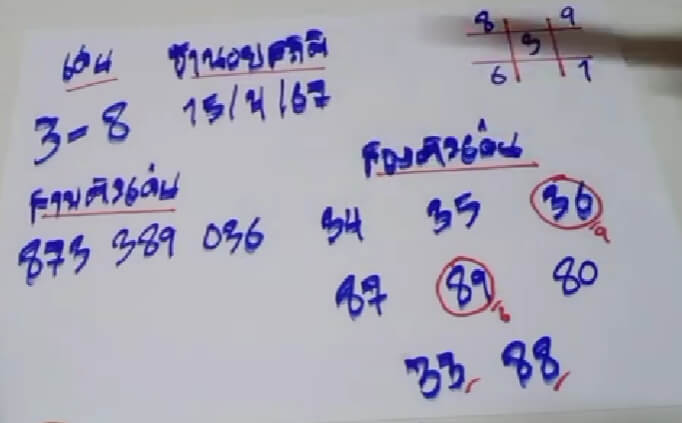 8 9
3
6 1
เด่น ชานอยพิกัติ
3-8 15/4/67
สามตัวเด่น สองตัวเด่น
873 389 036 34 35 36
87 89 80
33 88